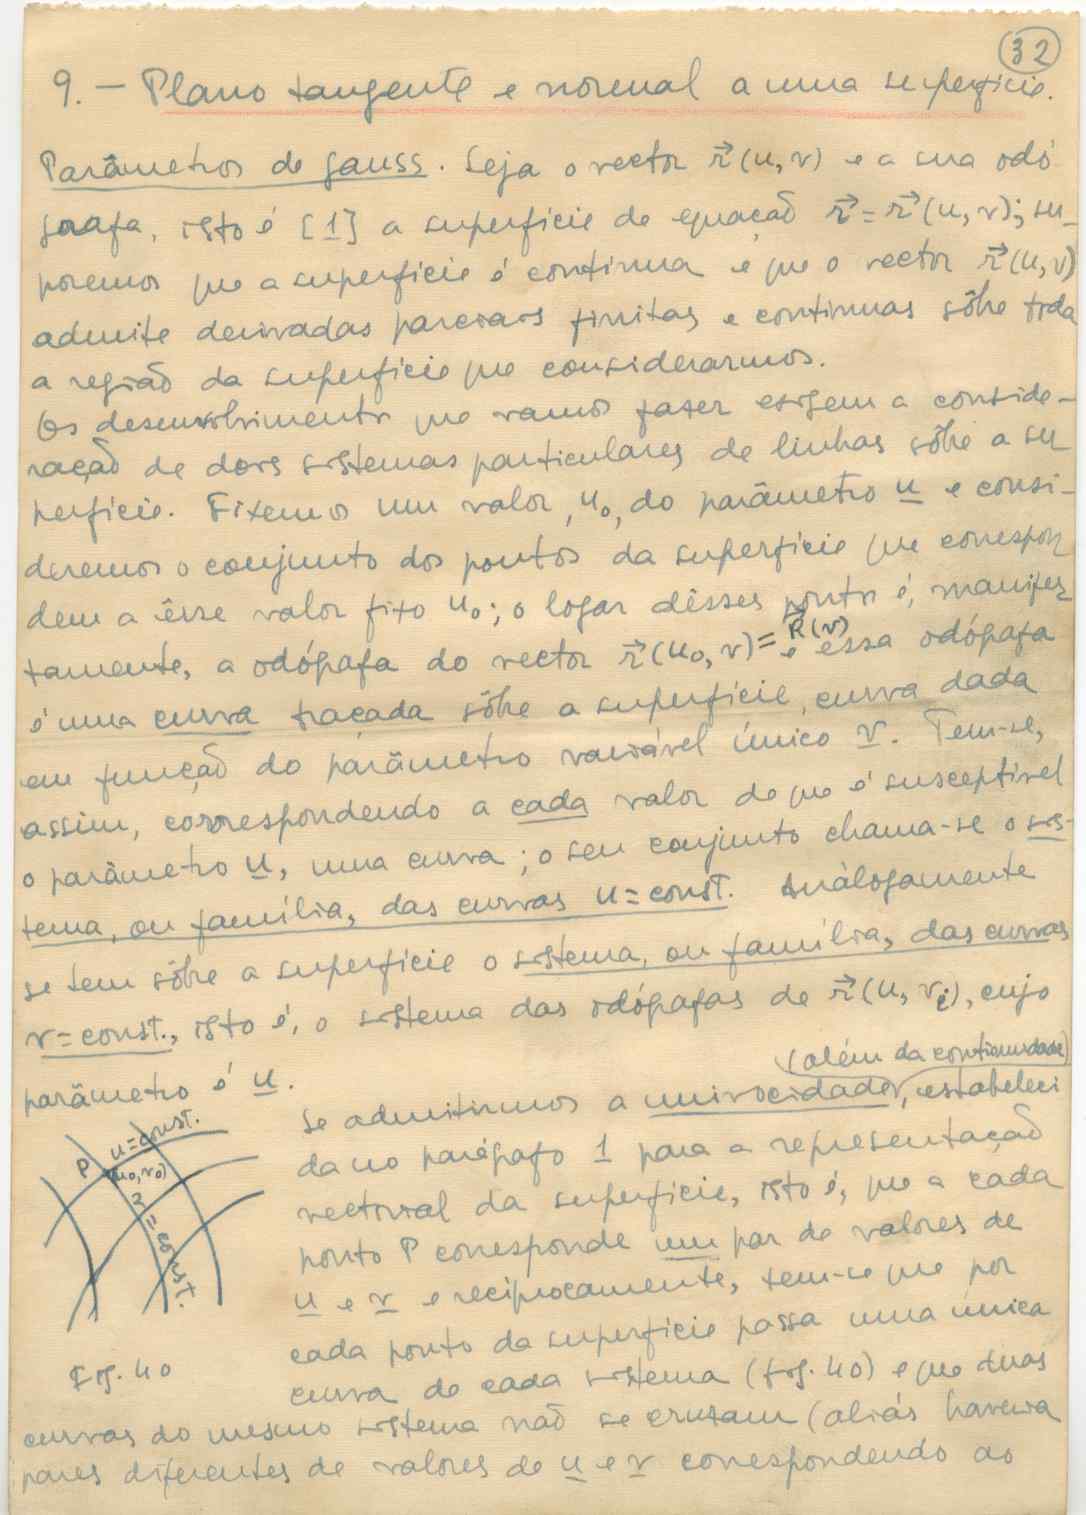 32
9. — Plano tangente e normal a uma superfície.
Parâmetros de Gauss. Seja o vector r⃗(u,v) e a sua odó
grafa, isto é [1] a superfície de equação r⃗=r⃗(u,v); su-
poremos que a superfície é contínua e que o vector r⃗(u,v)
admite derivadas parciais finitas e contínuas sôbre toda
a região da superfície que considerarmos.
Os desenvolvimentos que vamos fazer exigem a conside-
ração de dois sistemas particulares de linhas sôbre a su
perfície. Fixemos um valor, u₀, do parâmetro u e consi-
deremos o conjunto dos pontos da superfície que correspon
dem a êsse valor fixo u₀; o logar dêsses pontos é, manifes
tamente, a odógrafa do vector r⃗(u₀,v)=R⃗(v) e essa odógrafa
é uma curva traçada sôbre a superfície, curva dada
em função do parâmetro variável único v. Tem-se,
assim, correspondendo a cada valor de que é susceptível
o parâmetro u, uma curva; o seu conjunto chama-se o sis-
tema, ou família, das curvas u=const. Anàlogamente
se tem sôbre a superfície o sistema, ou família, das curvas
v=const., isto é, o sistema das odógrafas de r⃗(u,vᵢ), cujo
parâmetro é u.
Se admitirmos a univocidade, (além da continuidade) estabeleci
da no parágrafo 1 para a representação
vectorial da superfície, isto é, que a cada
ponto P corresponde um par de valores de
u e v e reciprocamente, tem-se que por
cada ponto da superfície passa uma única
curva de cada sistema (fig. 40) e que duas
curvas do mesmo sistema não se cruzam (aliás haveria
pares diferentes de valores de u e v correspondendo ao
P
u=const.
(u₀,v₀)
v=const.
Fig. 40